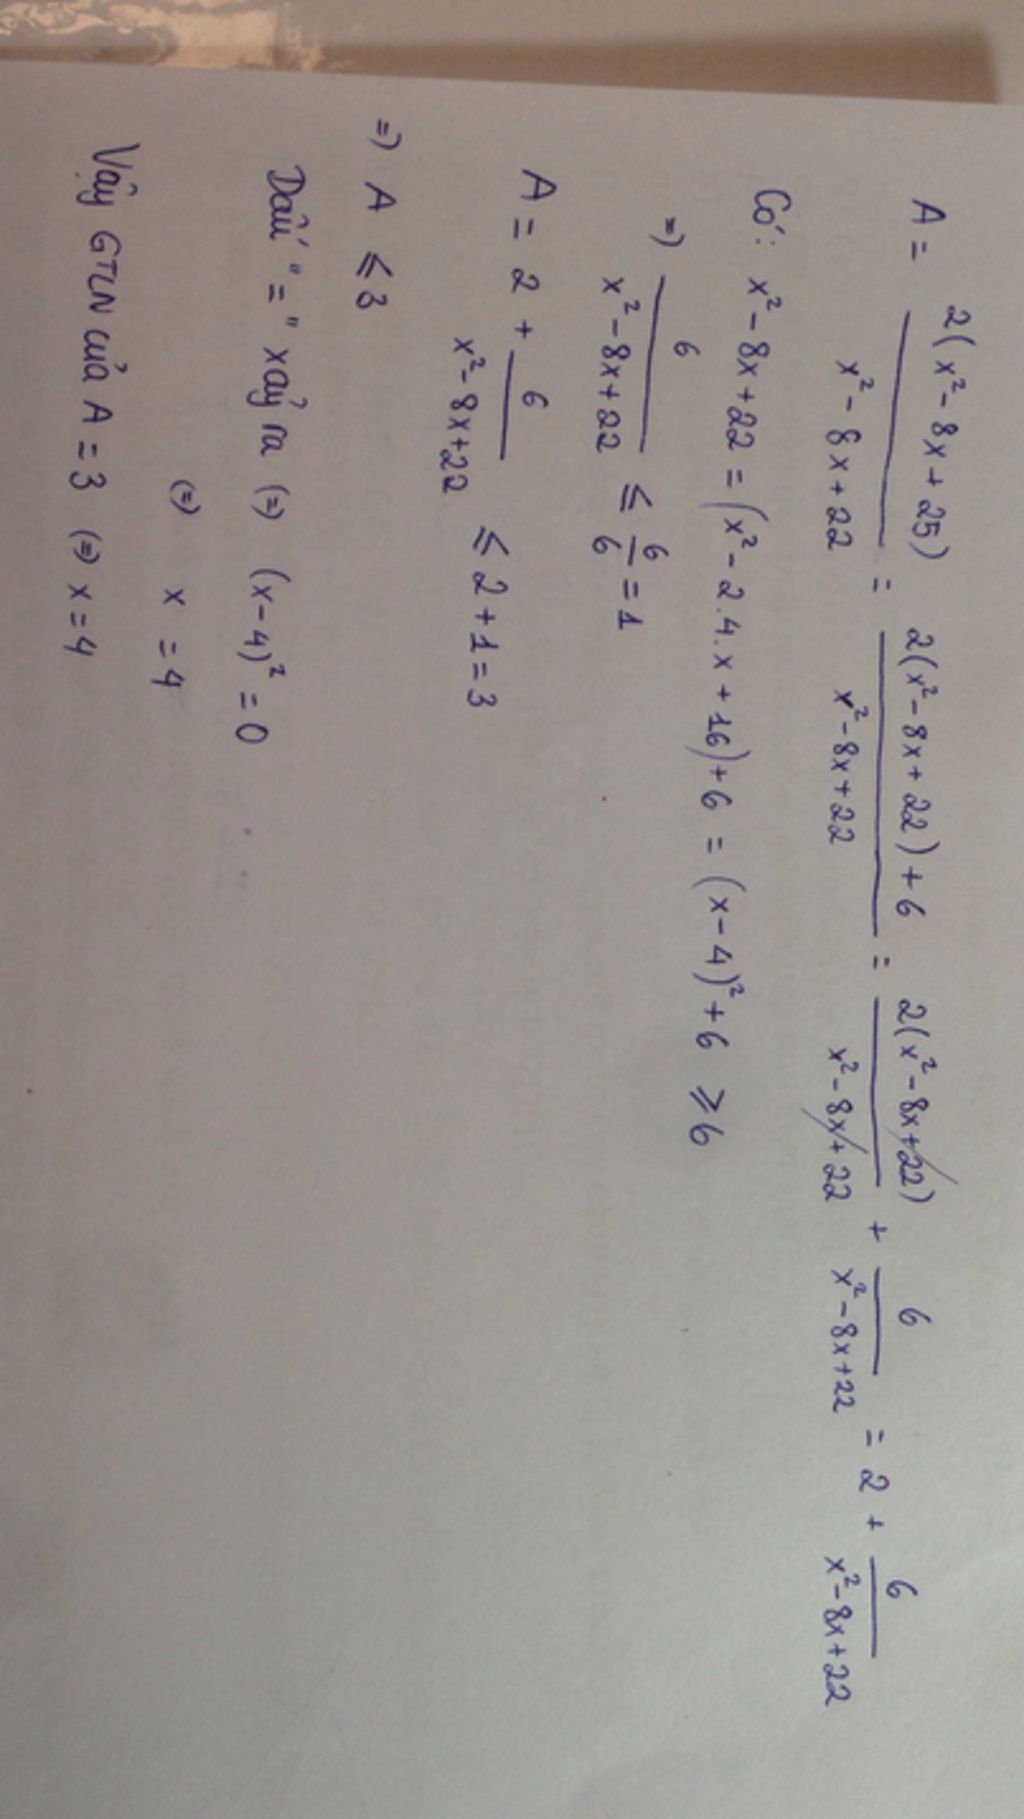 A = 2(x² - 8x + 25) / x² - 8x + 22 = 2(x² - 8x + 22) + 6 / x² - 8x + 22 = 2(x² - 8x + 22) / x² - 8x + 22 + 6 / x² - 8x + 22 = 2 + 6 / x² - 8x + 22
Có: x² - 8x + 22 = (x² - 2.4.x + 16) + 6 = (x - 4)² + 6 ⩾ 6
=) 6 / x² - 8x + 22 ⩽ 6 / 6 = 1
A = 2 + 6 / x² - 8x + 22 ⩽ 2 + 1 = 3
=) A ⩽ 3
Dấu "=" xảy ra (=) (x - 4)² = 0
(=) x = 4
Vậy GTLN của A = 3 (=) x = 4